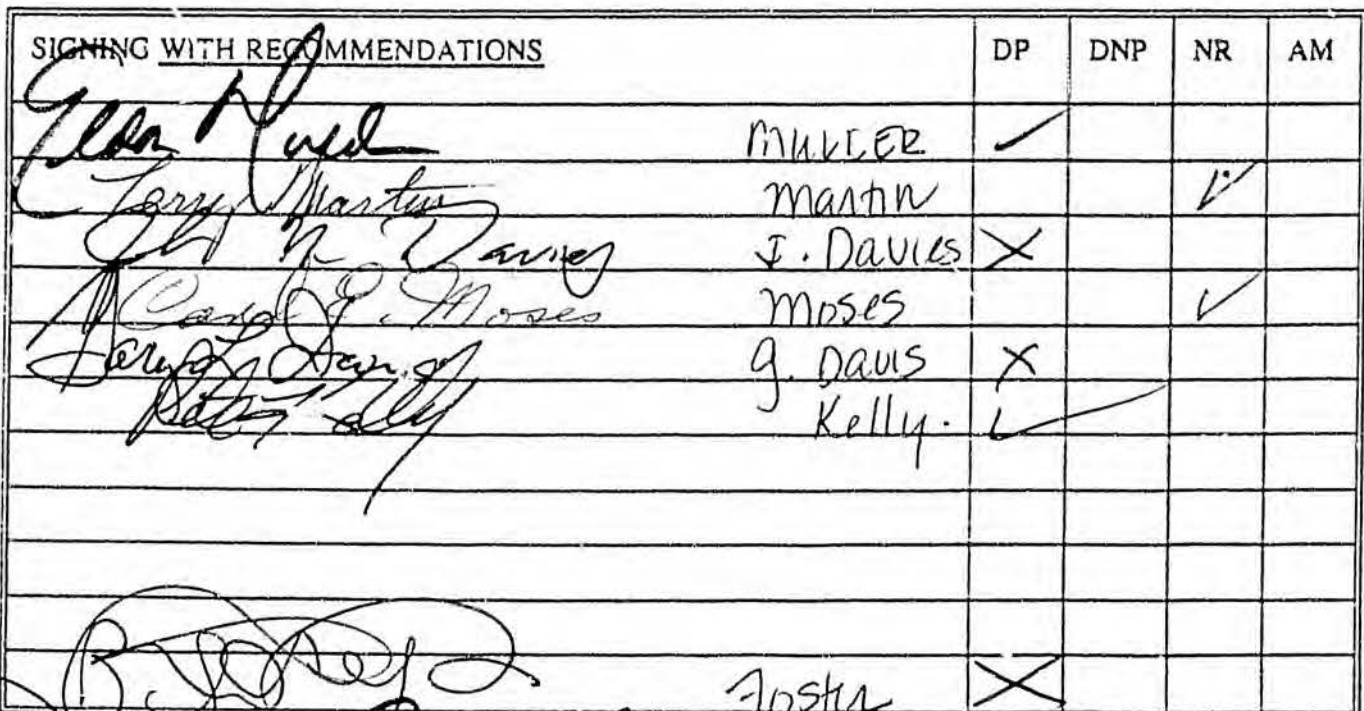 SIGNING WITH RECOMMENDATIONS DP DNP NR AM
Eldon MULDER ✓
Terry Martin Martin ✓
Davies J. Davies X
Carol J. Moses Moses ✓
Gary L Davis G. Davis X
Kelly Kelly. ✓
Foster X